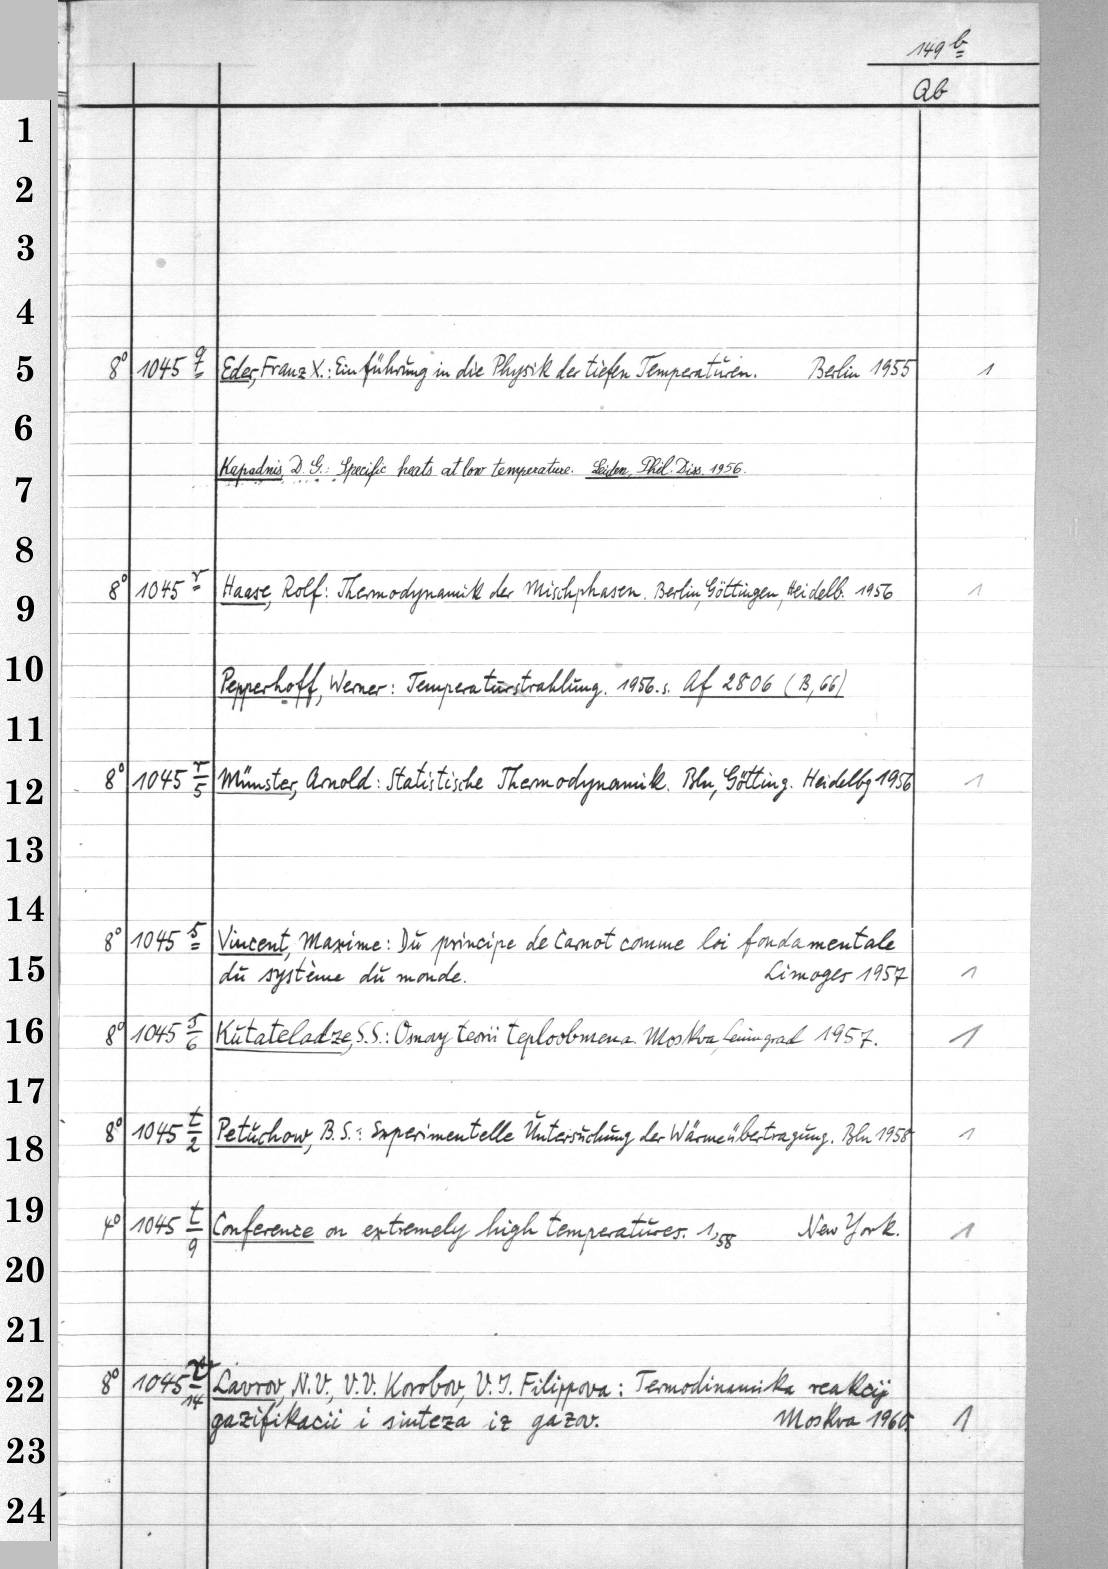 149 b
Ab
1
2
3
4
5 8° 1045 q Eder, Franz X.: Einführung in die Physik der tiefen Temperaturen. Berlin 1955 1
6
7 Kapadnis, D. G.: Specific heats at low temperature. Leiden, Phil. Diss. 1956.
8
9 8° 1045 r Haase, Rolf: Thermodynamik der Mischphasen. Berlin, Göttingen, Heidelb. 1956 1
10 Pepperhoff, Werner: Temperaturstrahlung. 1956. s. Af 2806 (B, 66)
11
12 8° 1045 r/5 Münster, Arnold: Statistische Thermodynamik. Bln, Götting. Heidelbg 1956 1
13
14
8° 1045 s Vincent, Maxime: Du principe de Carnot comme loi fondamentale
15 du système du monde. Limoges 1957 1
16 8° 1045 s/6 Kutateladze, S.S.: Osnovy teorii teploobmena. Moskva, Leningrad 1957. 1
17
18 8° 1045 t/2 Petuchow, B.S.: Experimentelle Untersuchung der Wärmeübertragung. Bln 1958 1
19 4° 1045 t/9 Conference on extremely high temperatures. 1,58 New York. 1
20
21
22 8° 1045 t/14 Lavrov, N.V., V.V. Korobov, V.I. Filippova: Termodinamika reakcij
gazifikacii i sinteza iz gazov. Moskva 1960. 1
23
24